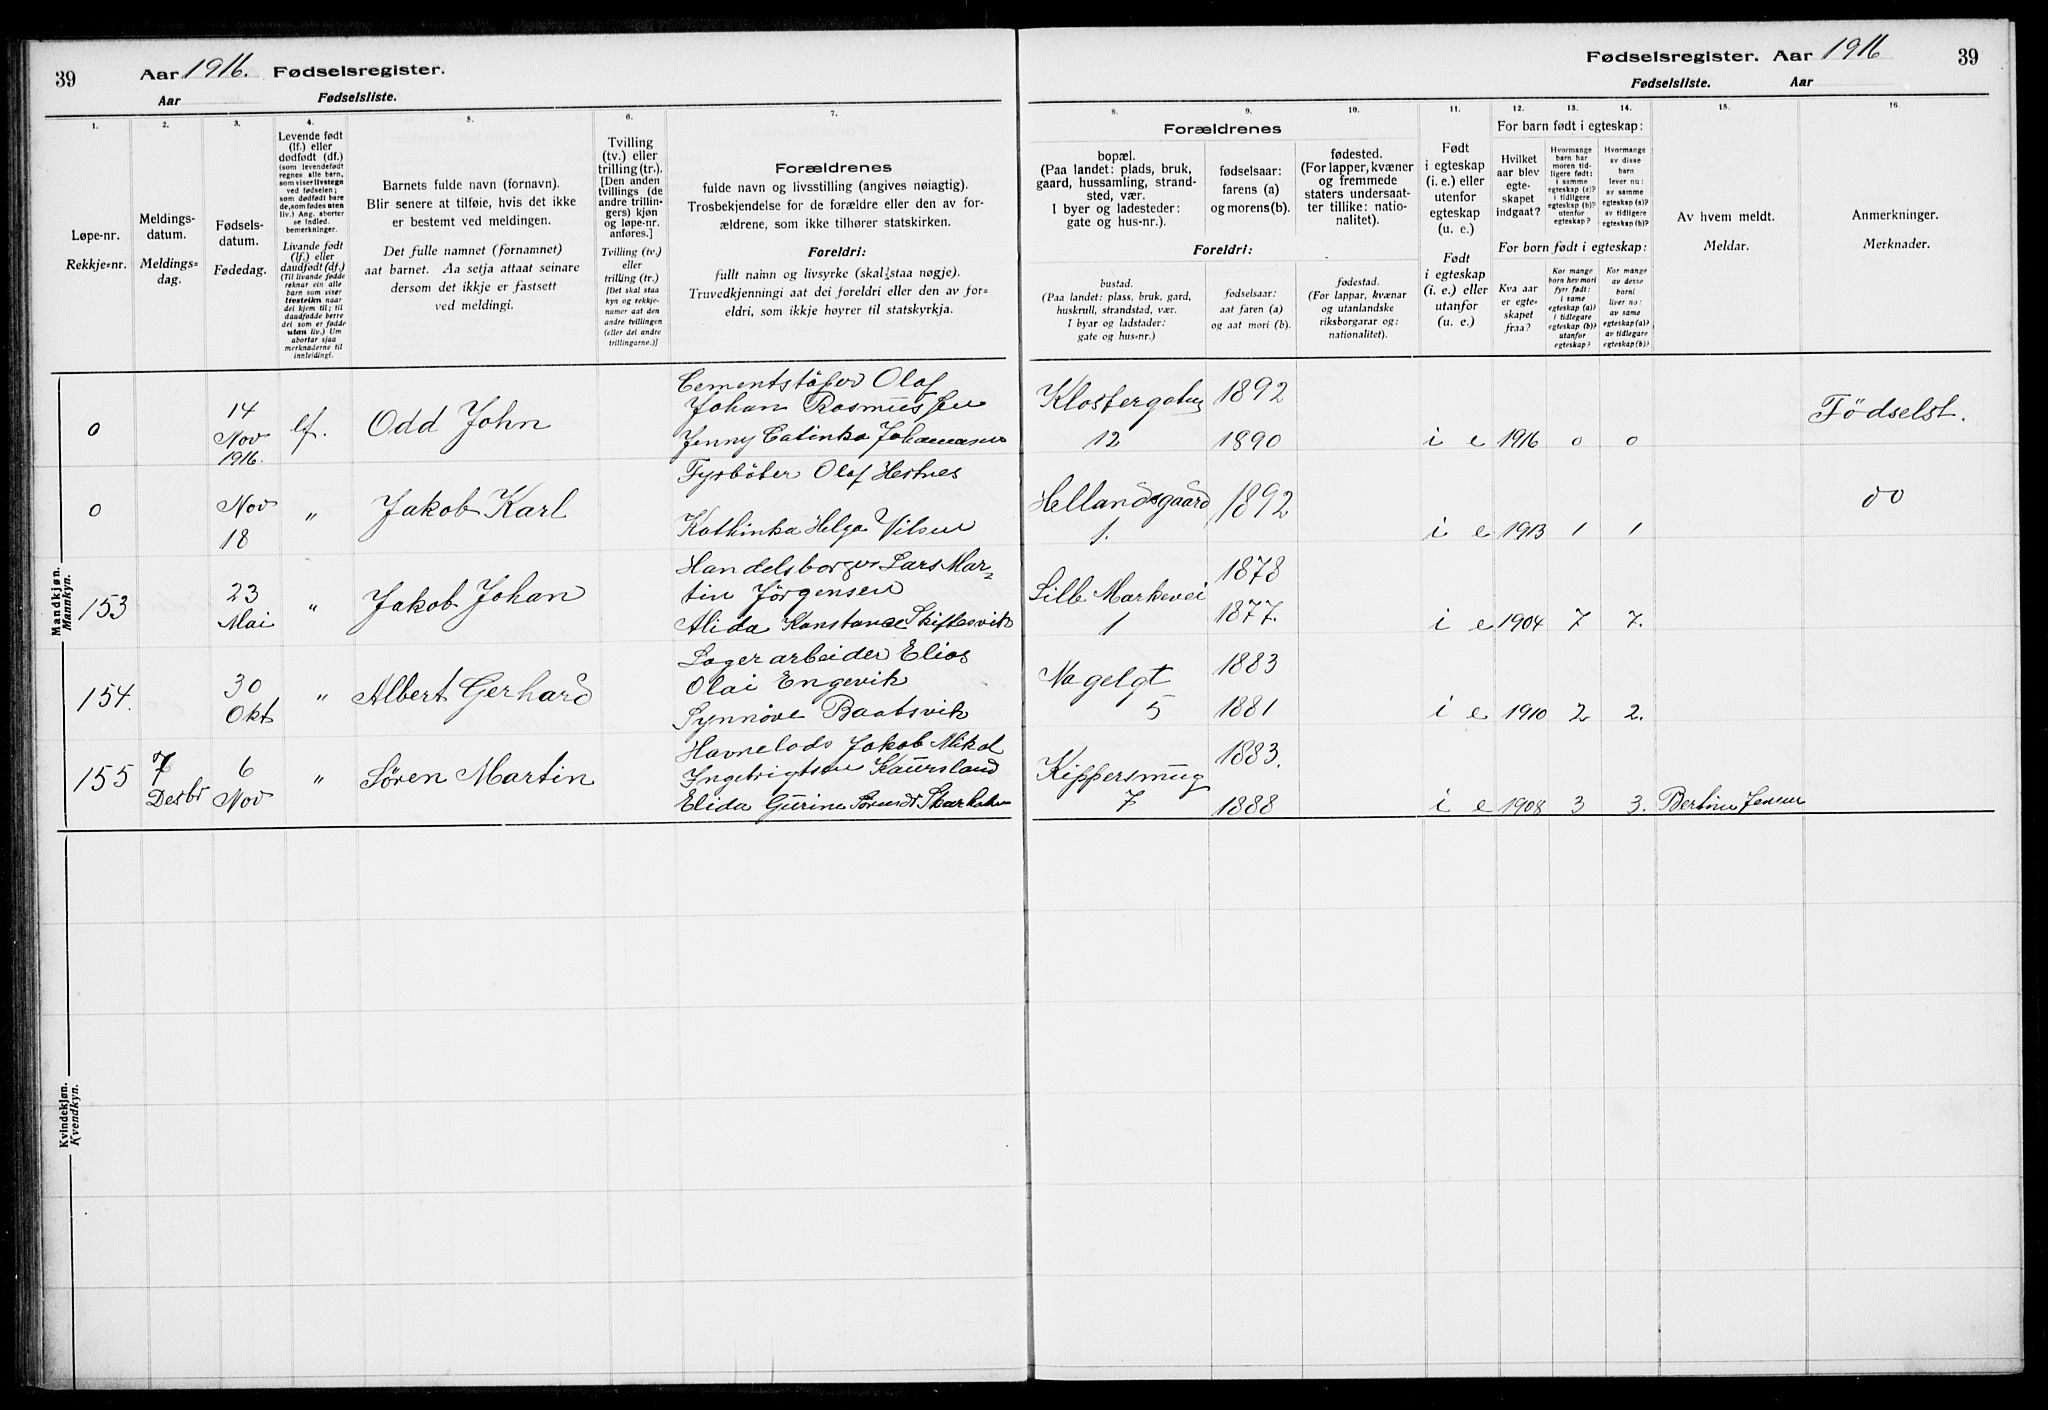 39 Aar 1916. Fødselsregister.
Aar Fødselsliste.
1.
Løpe-nr.
Rekkje=nr.
2.
Meldings-
datum.
Meldings=
dag.
3.
Fødsels-
datum.
Fødedag.
4.
Levende født
(lf.) eller
dødfødt (df.)
(som levendefødt
regnes alle barn,
som viser livstegn
ved fødselen;
som dødfødt bare
de, som fødes uten
liv.) Ang. aborter
se Indled.
bemerkninger.
Livande født
(lf.) eller
daudfødt (df.)
(Til livande fødde
reknar ein alle
barn som viser
livsteikn naar
dei kjem til; til
daudfødde berre
dei som er fødde
utan liv.) Um
abortar sjaa
merknaderne til
innleidingi.
5.
Barnets fulde navn (fornavn).
Blir senere at tilføie, hvis det ikke
er bestemt ved meldingen.
Det fulle namnet (fornamnet)
aat barnet. Aa setja attaat seinare
dersom det ikkje er fastsett
ved meldingi.
6.
Tvilling
(tv.) eller
trilling (tr.).
[Den anden
tvillings (de
andre trillin-
gers) kjøn
og løpe-nr.
anføres.]
Tvilling (tv.)
eller
trilling (tr.)
[Det skal staa
kyn og rekkje-
numer aat den
andre tvillingen
(eller dei andre
trillingarne.)]
7.
Forældrenes
fulde navn og livsstilling (angives nøiagtig).
Trosbekjendelse for de forældre eller den av for-
ældrene, som ikke tilhører statskirken.
Foreldri:
fullt namn og livsyrke (skal staa nøgje).
Truvedkjenningi aat dei foreldri eller den av for=
eldri, som ikkje høyrer til statskyrkja.
Mandkjøn.
Mannkyn.
0
14
Nov
1916.
lf.
Odd John
Cementstøber Olaf
Johan Rasmussen
Jenny Catinka Johannesen
0
Nov
18
"
Jakob Karl
Fyrbøter Olaf Hestnes
Kathinka Helga Nilsen
153
23
Mai
"
Jakob Johan
Handelsborger Lars Mar=
tin Jørgensen
Alida Konstance Skiftesvik
154.
30
Okt
"
Albert Gerhard
Lagerarbeider Elias
Olai Engevik
Synnøve Baatsvik
155
7
Desbr
6
Nov
"
Søren Martin
Havnelods Jakob Mikal
Ingebrigtsen Kaursland
Elida Gurine
Kvindekjøn.
Kvendkyn.
Fødselsregister. Aar 1916 39
Fødselsliste. Aar
Forældrenes
8.
bopæl.
(Paa landet: plads, bruk,
gaard, hussamling, strand-
sted, vær.
I byer og ladesteder:
gate og hus-nr.).
9.
fødselsaar:
farens (a)
og morens (b).
10.
fødested.
(For lapper, kvæner
og fremmede
staters undersaat-
ter tillike: natio-
nalitet).
Foreldri:
bustad.
(Paa landet: plass, bruk, gard,
huskrull, strandstad, vær.
I byar og ladstader:
gate og hus=nr.)
fødselsaar:
aat faren (a)
og aat mori (b).
fødestad.
(For lappar, kvænar
og utanlandske
riksborgarar og:
nationalitet).
11.
Født
i egteskap
(i. e.) eller
utenfor
egteskap
(u. e.)
Født
i egteskap
(i. e.) eller
utanfor
(u. e.)
For barn født i egteskap:
12.
Hvilket
aar blev
egte-
skapet
indgaat?
13.
Hvormange
barn har
moren tid-
ligere født:
i samme
egteskap (a)?
i tidligere
egteskap (b)?
utenfor
egteskap?
14.
Hvormange
av disse
barn
lever nu:
av samme
egteskap (a)?
av tidligere
egteskap (b)?
For born født i egteskap:
Kva aar
er egte-
skapet
fraa?
Kor mange
born hev mori
fyrr født:
i same
egteskap (a)?
i tidlegare
egteskap (b)?
utanfor
egteskap?
Kor mange
av desse
borni
liver no:
av same
egteskap (a)?
av tidlegare
egteskap (b)?
15.
Av hvem meldt.
Meldar.
16.
Anmerkninger.
Merknader.
Klostergaten
12
1892
1890
i e 1916 0 0
Fødselst.
Hellandsgaard
1.
1892
i e 1913 1 1
do
Lille Markevei
1
1878
1877.
i e 1904 7 7.
Nagelgt
5
1883
1881
i e 1910 2 2.
Kippersmug
7
1883.
1888
i e 1908 3 3. Bertine Jensen